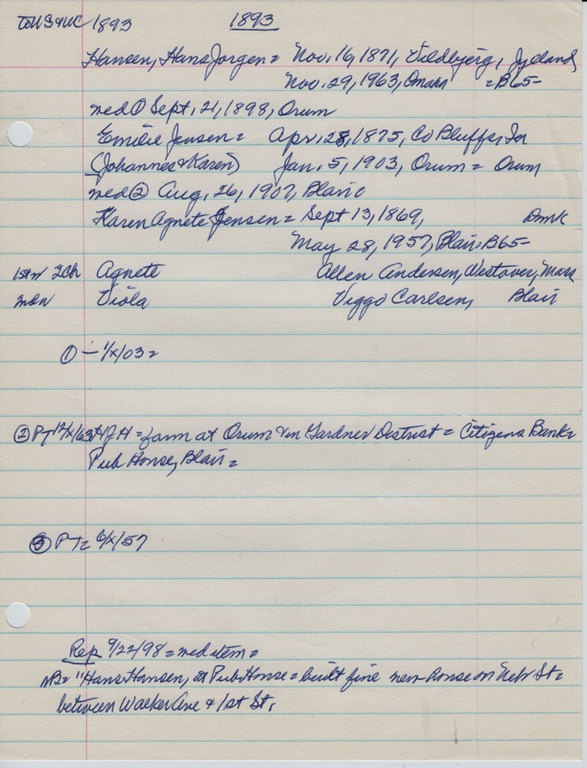 1893
1893
Hansen, Hans Jorgen = Nov. 16, 1871, Vildbjerg, Jylland
Nov. 29, 1963, Omaha = B65-
med ① Sept, 21, 1898, Orum
Emilie Jensen = Apr. 28, 1875, Co Bluffs, Ia
(Johannes & Karen) Jan. 5, 1903, Orum = Orum
med ② Aug, 26, 1907, Blair
Karen Agnete Jensen = Sept 13, 1869, Dmk
May 28, 1957, Blair, B65-
1st m 2ch Agnete Allen Andersen, Westover, Mass
Viola Viggo Carlsen, Blair
① - 1/X/03 =
② PT 12/X/63 HJH = farm at Orum & in Gardner District = Citizens Bank =
Pub House, Blair =
③ PT = 6/X/57
Rep 9/22/98 = med item =
NB = "Hans Hansen, at Pub House = built fine new house on Nebr St =
between Walker Ave & 1st St,